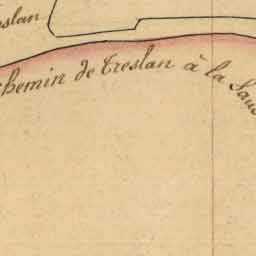 eslan
chemin de Treslan à la Sau